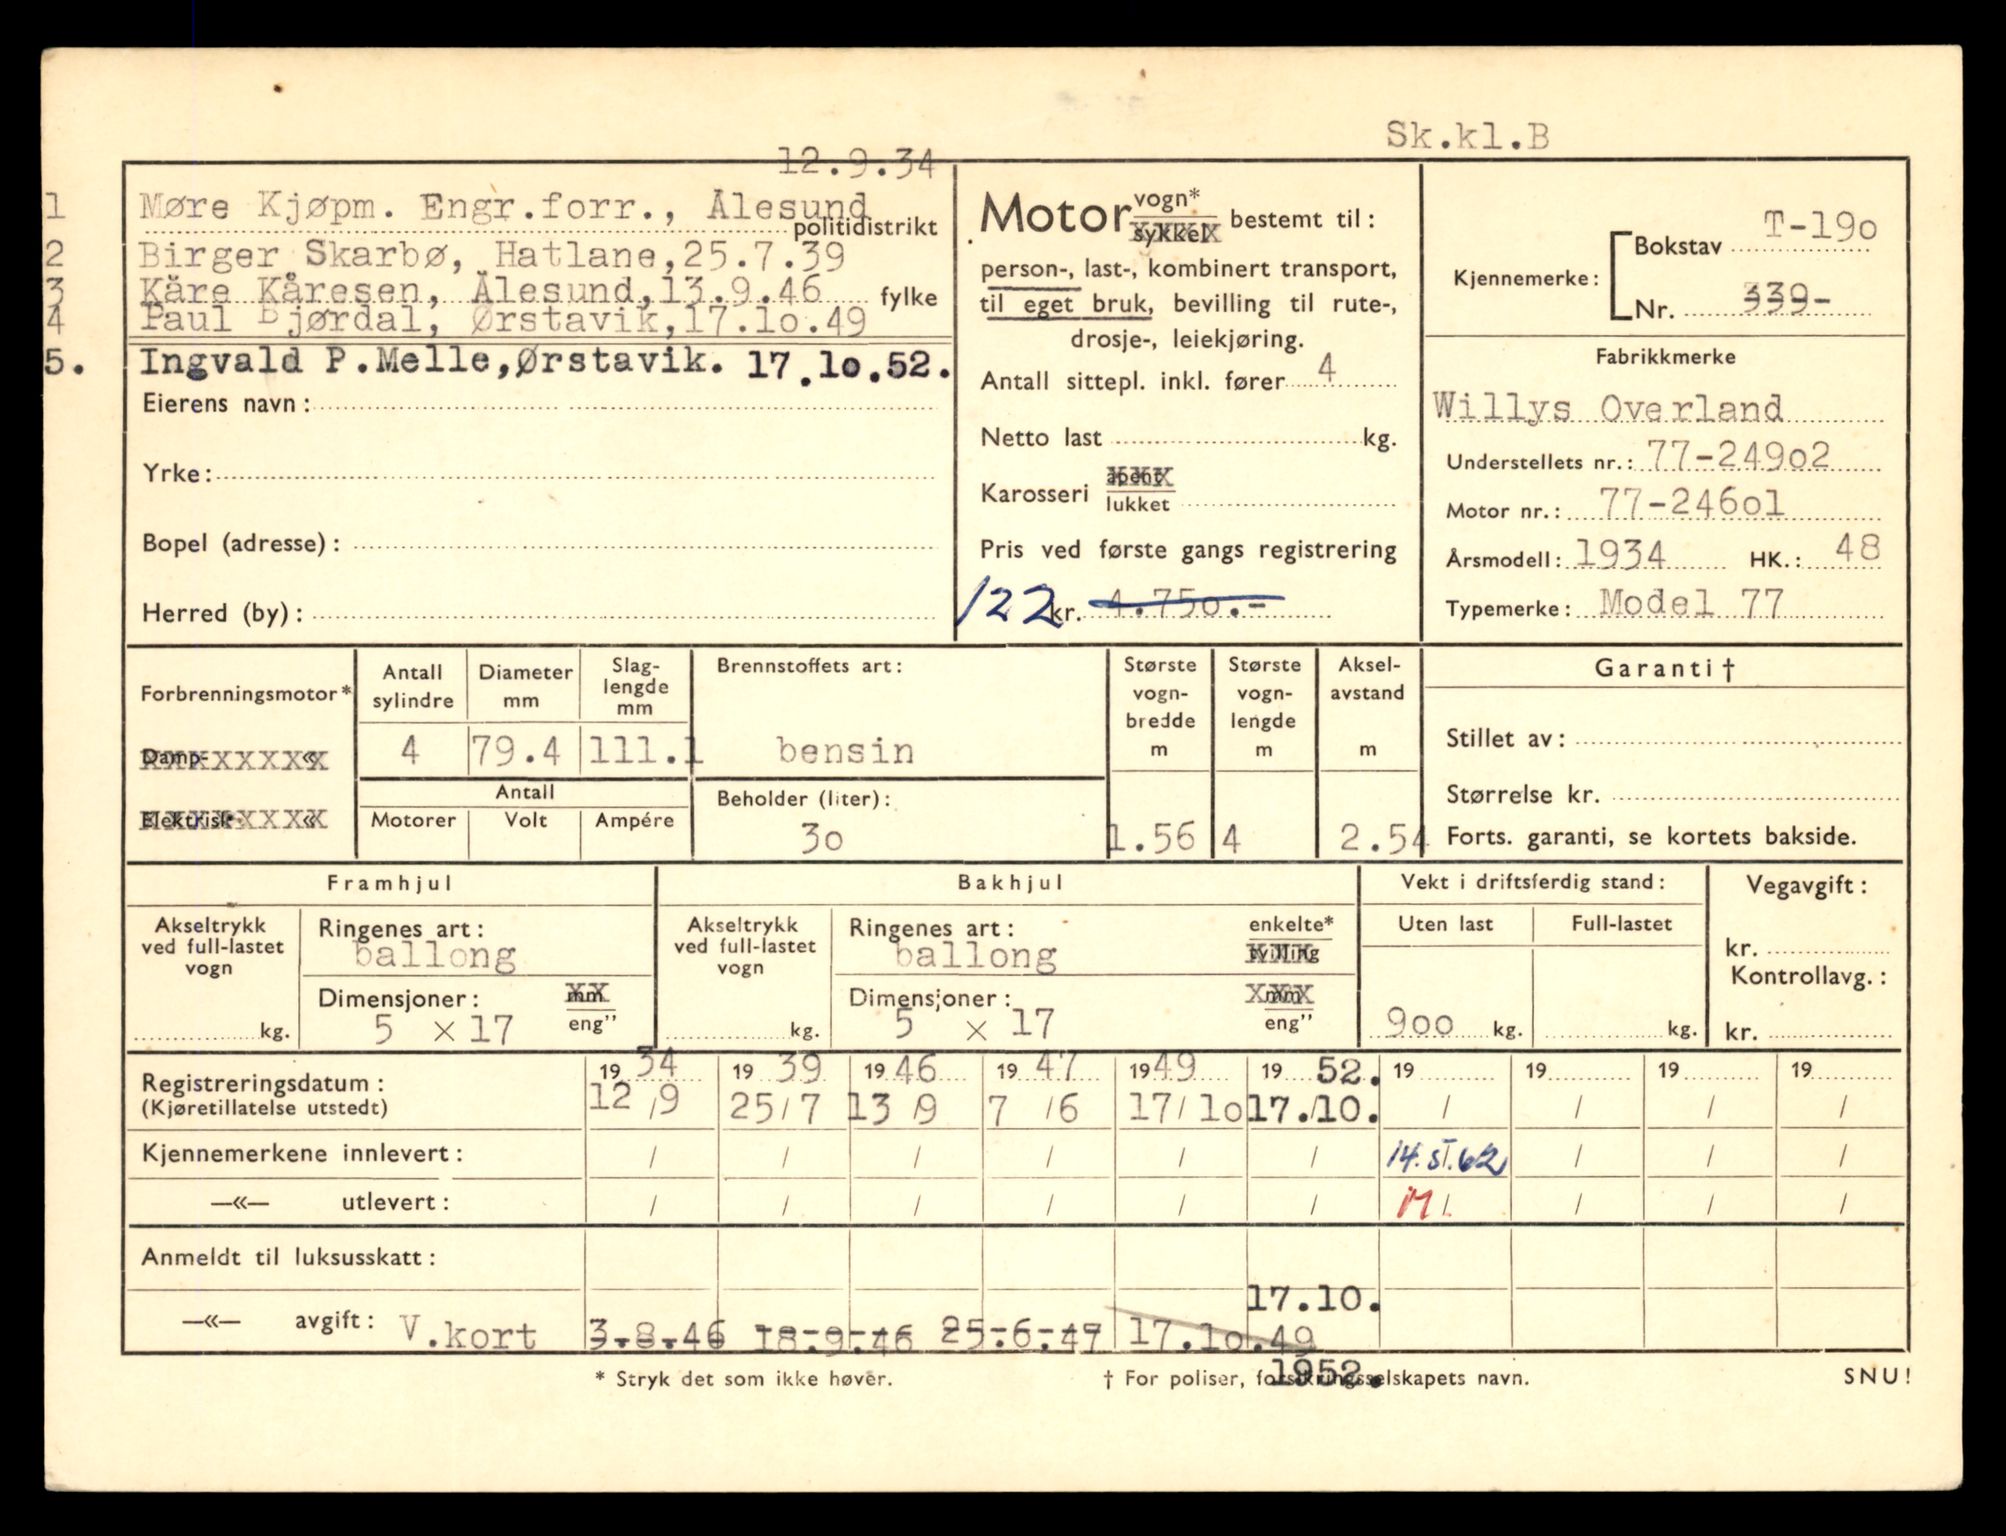 Sk.kl.B
12.9.34
1 Møre Kjøpm. Engr.forr., Ålesund
politidistrikt
2 Birger Skarbø, Hatlane,25.7.39
3 Kåre Kåresen, Ålesund,13.9.46 fylke
4 Paul Bjørdal, Ørstavik,17.1o.49
5. Ingvald P.Melle,Ørstavik. 17.1o.52.
Eierens navn:
Yrke:
Bopel (adresse):
Herred (by):
Motor vogn* sykkel bestemt til:
person-, last-, kombinert transport,
til eget bruk, bevilling til rute-,
drosje-, leiekjøring.
Antall sittepl. inkl. fører 4
Netto last kg.
Karosseri åpent lukket
Pris ved første gangs registrering
122 kr. 4.75o.-
Kjennemerke: Bokstav T-19o
Nr. 339-
Fabrikkmerke
Willys Overland
Understellets nr.: 77-249o2
Motor nr.: 77-246o1
Årsmodell: 1934 HK.: 48
Typemerke: Model 77
Forbrenningsmotor*
Damp- «
Elektrisk- «
Antall sylindre
4
Diameter mm
79.4
Slag-lengde mm
111.1
Antall
Motorer Volt Ampére
Brennstoffets art:
bensin
Beholder (liter):
3o
Største vogn-bredde m
1.56
Største vogn-lengde m
4
Aksel-avstand m
2.54
Garanti †
Stillet av:
Størrelse kr.
Forts. garanti, se kortets bakside.
Framhjul
Akseltrykk ved full-lastet vogn
kg.
Ringenes art:
ballong
Dimensjoner: mm
5 × 17 eng”
Bakhjul
Akseltrykk ved full-lastet vogn
kg.
Ringenes art: enkelte*
ballong tvilling
Dimensjoner: mm
5 × 17 eng”
Vekt i driftsferdig stand:
Uten last Full-lastet
9oo kg. kg.
Vegavgift:
kr.
Kontrollavg.:
kr.
Registreringsdatum: 1934 1939 1946 1947 1949 1952. 19 19 19 19
(Kjøretillatelse utstedt) 12/9 25/7 13/9 7/6 17/1o 17./10. / / / /
Kjennemerkene innlevert: / / / / / / 14.ST.62 / / /
—«— utlevert: / / / / / / M/. / / /
Anmeldt til luksusskatt:
17.10.
—«— avgift: V.kort 3.8.46 18.9.46 25.6.47 17.1o.49
1952.
* Stryk det som ikke høver. † For poliser, forsikringsselskapets navn. SNU!